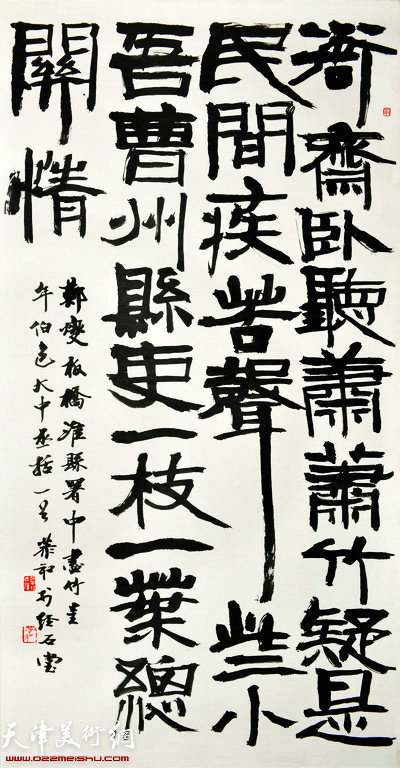 衙齋卧聽蕭蕭竹疑是
民間疾苦聲些小
吾曹州縣吏一枝一葉總
關情
鄭燮板橋濰縣署中畫竹呈
年伯包大中丞括一
天津美術網
www.022meishu.com